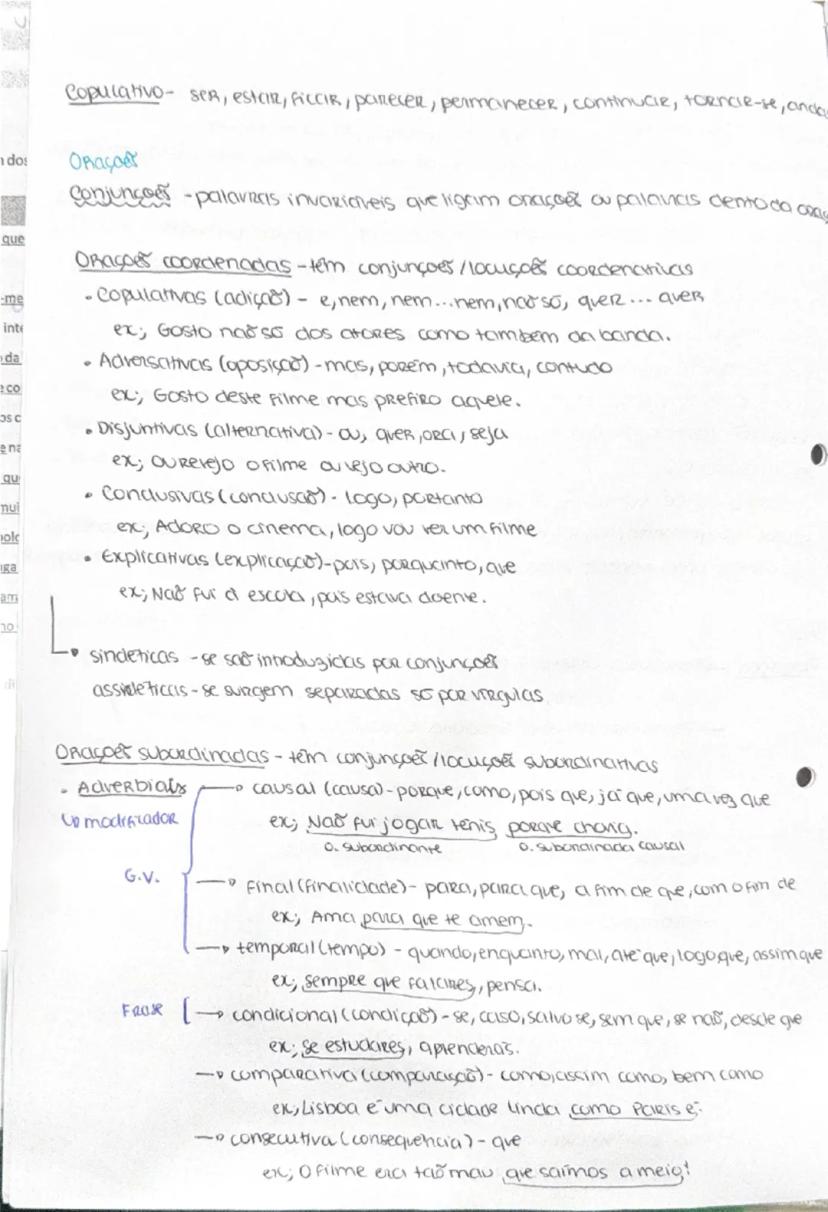 Copulativo - ser, estar, ficar, parecer, permanecer, continuar, tornar-se, anda
Orações
Conjunções - palavras invariáveis que ligam orações ou palavras dentro da oraç
Orações coordenadas - têm conjunções / locuções coordenativas
• Copulativas (adição) - e, nem, nem...nem, não só, quer... quer
ex; Gosto não só dos atores como também da banda.
• Adversativas (oposição) - mas, porém, todavia, contudo
ex; Gosto deste filme mas prefiro aquele.
• Disjuntivas (alternativa) - ou, quer, ora, seja
ex; ou revejo o filme ou vejo outro.
• Conclusivas (conclusão) - logo, portanto
ex; Adoro o cinema, logo vou ver um filme
• Explicativas (explicação) - pois, porquanto, que
ex; Não fui à escola, pois estava doente.
sindéticas - se são introduzidas por conjunções
assindéticas - se surgem separadas só por vírgulas
Orações subordinadas - têm conjunções / locuções subordinativas
• Adverbiais
↳ modificador
G.V.
→ causal (causa) - porque, como, pois que, já que, uma vez que
ex; Não fui jogar ténis porque chovia.
o. subordinante o. subordinada causal
→ Final (finalidade) - para, para que, a fim de que, com o fim de
ex; Ama para que te amem.
→ temporal (tempo) - quando, enquanto, mal, até que, logo que, assim que
ex; sempre que falares, pensa.
Frase
→ condicional (condição) - se, caso, salvo se, sem que, se não, desde que
ex; se estudares, aprenderás.
→ comparativa (comparação) - como, assim como, bem como
ex; Lisboa é uma cidade linda como Paris é.
→ consecutiva (consequência) - que
ex; O filme era tão mau que saímos a meio!